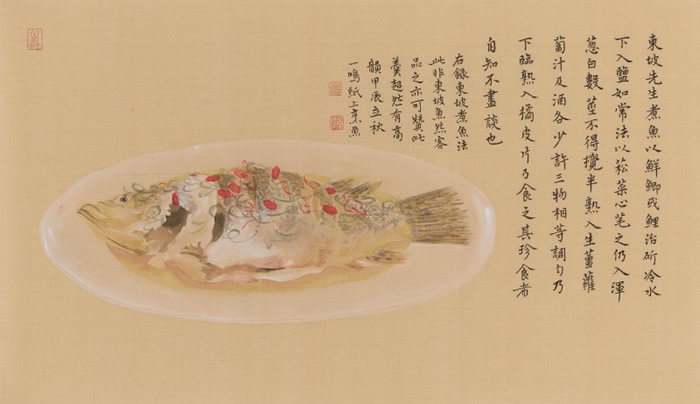 東坡先生煮魚以鮮鯽或鯉治斫冷水
下入鹽如常法以菘菜心芼之仍入渾
葱白數莖不得攪半熟入生薑蘿
蔔汁及酒各少許三物相等調勻乃
下臨熟入橘皮片乃食之其珍食者
自知不盡談也
右錄東坡煮魚法
此非東坡魚然客
品之亦可贊此
羹超然有高
韻甲辰立秋
一鳴紙上烹魚